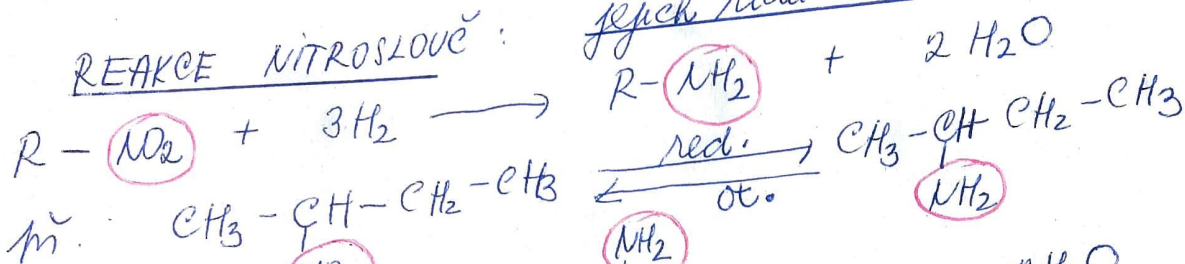 jejich
REAKCE NITROSLOUČ:
R – NO2 + 3H2 ⟶ R–NH2 + 2 H2O
př. CH3 – CH – CH2 – CH3 red. ot. CH3 – CH CH2 – CH3
NH2
NH2